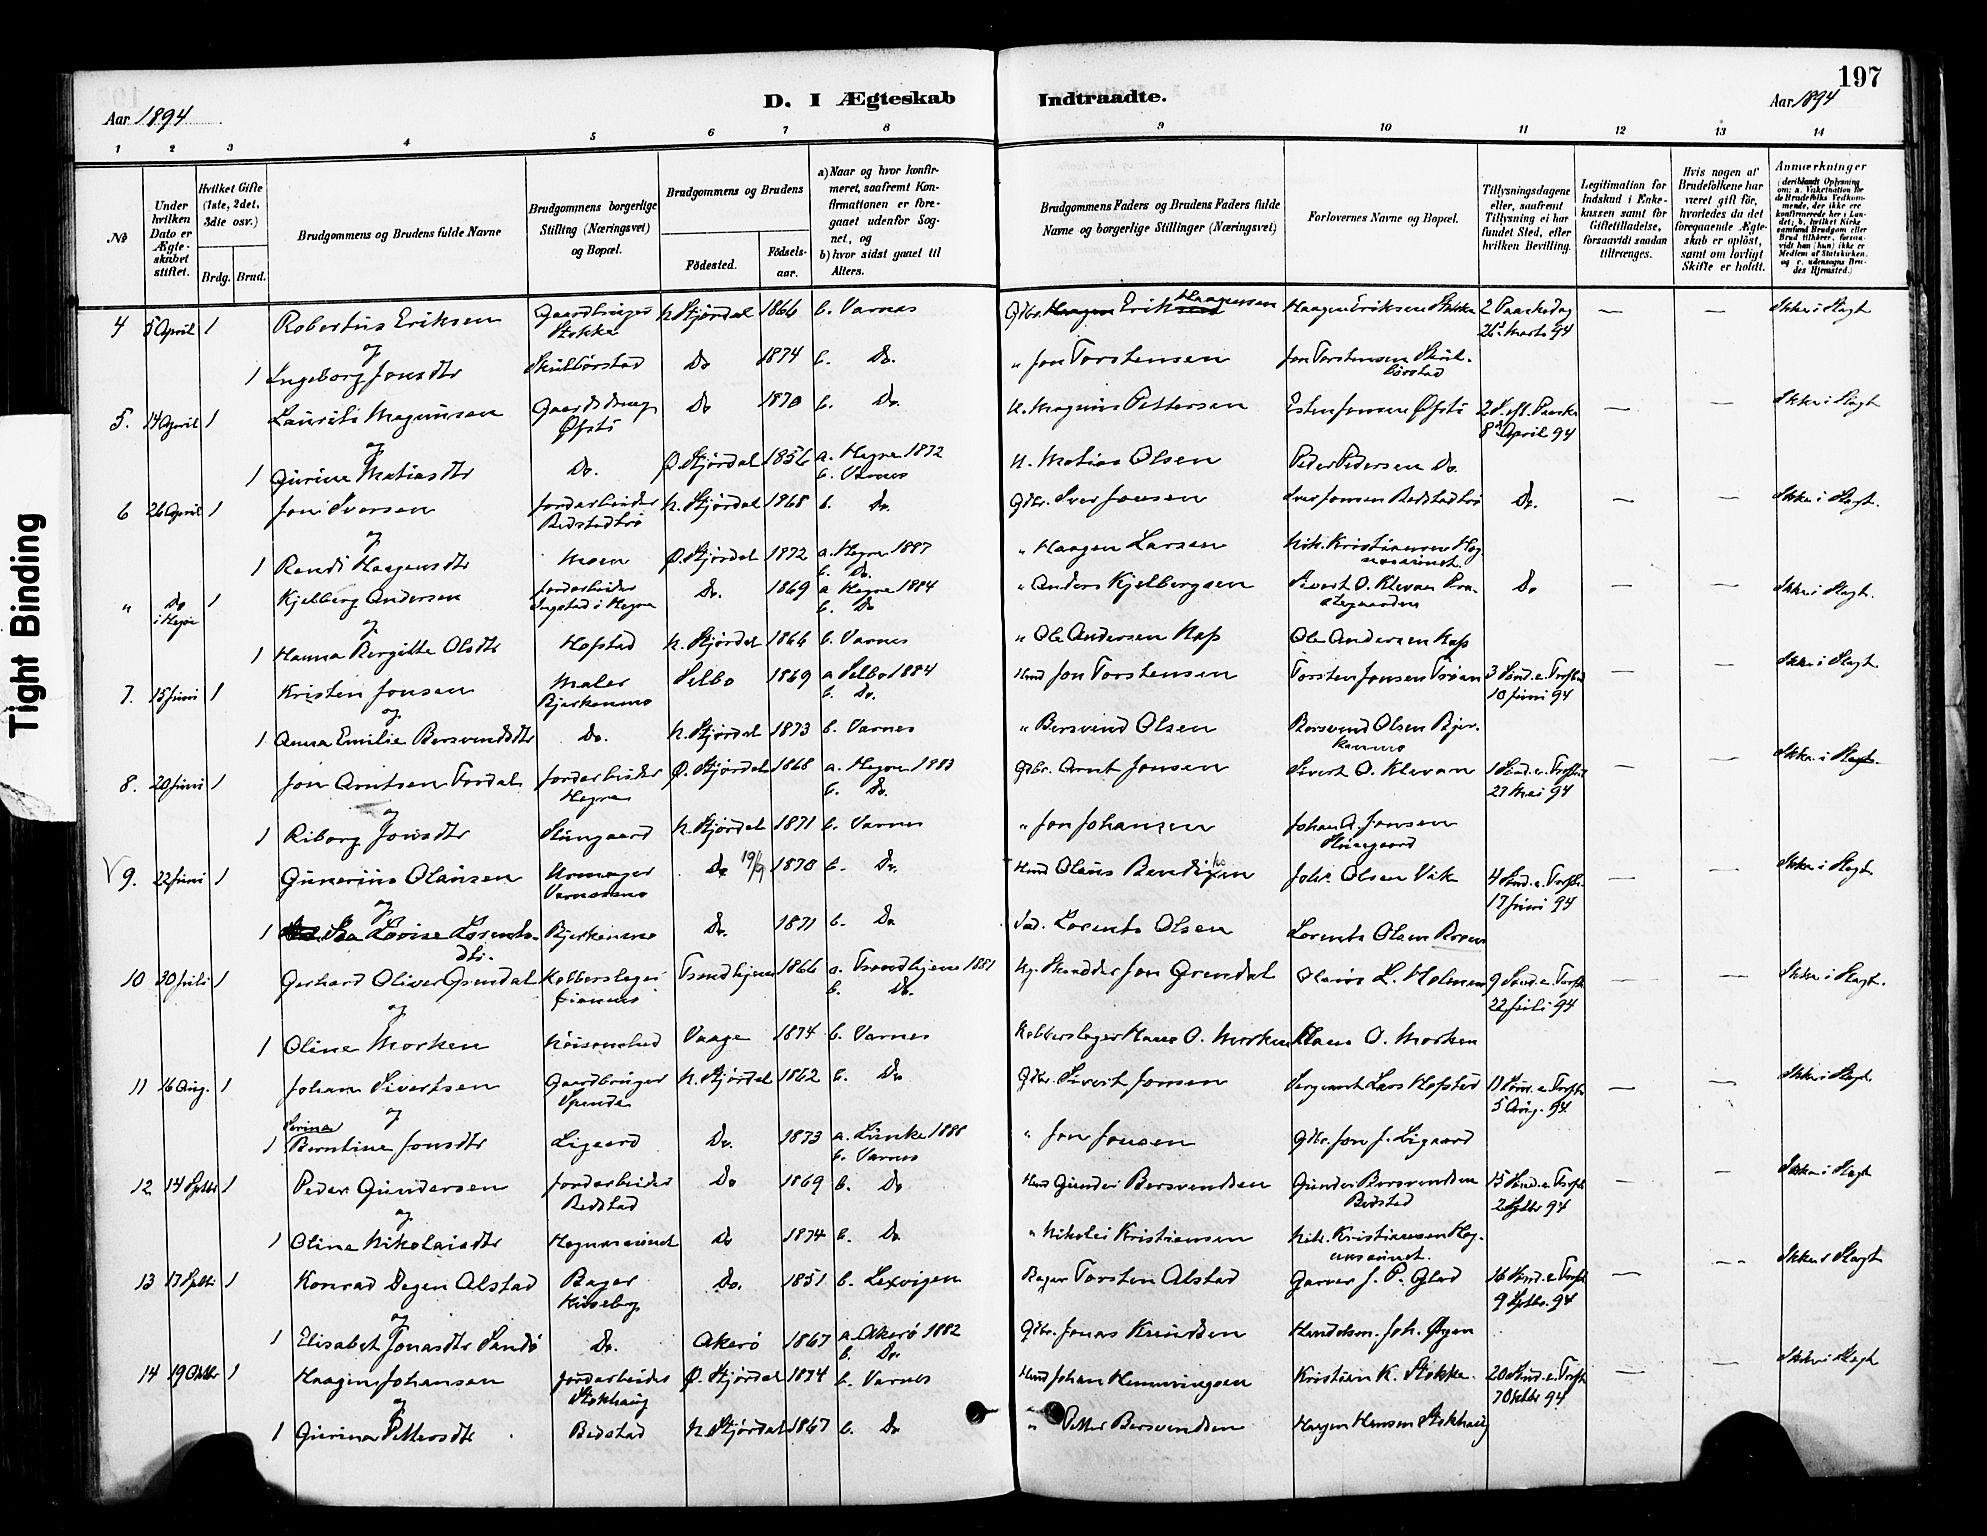 Tight Binding
197
D. I Ægteskab Indtraadte.
Aar 1894
Aar 1894
1 2 3 4 5 6 7 8 9 10 11 12 13 14
No
Under hvilken Dato er Ægteskabet stiftet.
Hvilket Gifte (1ste, 2det, 3die osv.)
Brdg. Brud.
Brudgommens og Brudens fulde Navne
Brudgommens borgerlige Stilling (Næringsvei) og Bopæl.
Brudgommens og Brudens
Fødested. Fødselsaar.
a) Naar og hvor konfirmeret, saafremt Konfirmationen er foregaaet udenfor Sognet, og
b) hvor sidst gaaet til Alters.
Brudgommens Faders og Brudens Faders fulde Navne og borgerlige Stillinger (Næringsvei)
Forlovernes Navne og Bopæl.
Tillysningsdagene eller, saafremt Tillysning ei har fundet Sted, efter hvilken Bevilling.
Legitimation for Indskud i Enkekassen samt for Giftetilladelse, forsaavidt saadan tiltrænges.
Hvis nogen af Brudefolkene har været gift før, hvorledes da det foregaaende Ægteskab er opløst, samt om lovligt Skifte er holdt.
Anmærkninger
4 5 April 1 Robertus Eriksen Gaardbruger Stokke N. Stjørdal 1866 b. Værnes Gdbr. Haagen Erik Haagensen Haagen Eriksen Stokke 2 Paaskedag 26 Marts 94 — — Ikke i Slægt
og
1 Ingeborg Jonsdtr Skulbørstad Do 1874 b. Do. " Jon Torstensen Jon Torstensen Skulbørstad
5. 14 April 1 Laurits Magnussen Gaardsdreng Øfsti Do 1870 b. Do. N. Magnus Pettersen Esten Jonsen Øfsti 2 S. eft. Paaske 8 April 94 — — Ikke i Slægt
og
1 Gurine Matiasdtr Do. Ø. Stjørdal 1856 a. Hegre 1872 b. Værnes N. Matias Olsen Peder Pedersen Do.
6 26 April 1 Jon Iversen Jordarbeider Bedstadbrø N. Stjørdal 1868 b. Do. Gdbr. Iver Jonsen Iver Jonsen Do. — — Ikke i Slægt.
og
1 Randi Haagensdtr Moen Ø. Stjørdal 1872 a. Hegre 1887 b. Do. " Haagen Larsen Nik. Kristiansen
" Do i Hegre 1 Kjelberg Andersen Jordarbeider Ingstad i Hegre Do. 1869 a Hegre 1884 b. Do " Anders Kjelbergsen Sivert O. Klevan Prestegaarden Do — — Ikke i Slægt.
og
1 Hanna Bergitte Olsdtr Hofstad N. Stjørdal 1866 b. Værnes " Ole Andersen Ole Andersen
7. 15 Juni 1 Kristen Jonsen Maler Bjerkenmo Selbo 1869 a Selbo 1884 b. Do. Hmd Jon Torstensen Torsten Jonsen 3 Sønd. e. Trefld 10 Juni 94 — — Ikke i Slægt.
og
1 Anna Emilie Bersvendsdtr Do. N. Stjørdal 1873 b. Værnes " Bersvend Olsen Bersvend Olsen Bjerkenmo
8. 20 Juni 1 Jon Arntsen Fordal Jordarbeider Hegre Ø. Stjørdal 1868 a. Hegre 1883 b. Do. Gdbr. Arnt Jonsen Sivert O. Klevan 1 Sønd. e. Trefld 27 Mai 94 — — Ikke i Slægt.
og
1 Riborg Jonsdtr N. Stjørdal 1871 b. Værnes " Jon Johansen Johan A. Jonsen
V 9. 22 Juni 1 Gunerius Olausen Urmager Værnesmo Do 19/9 1870 b. Do. Hmd Olaus Bendixen Johs Olsen Vik 4 Sønd. e. Trefld. 17 Juni 94 — — Ikke i Slægt
og
1 Lovise Lorentsdtr. Bjerkenmo Do. 1871 b. Do Lorents Olsen Lorents Olsen
10 30 Juli 1 Gerhard Oliver Grendal Kobberslager Trondhjem 1866 a. Trondhjem 1881 b. Do. Skrædder Jon Grendal Olaus L. Holmen 9 Sønd. e. Trefld 22 Juli 94 — — Ikke i Slægt.
og
1 Oline Morken Vaage 1874 b. Værnes Kobberslager Hans O. Morken Hans O. Morken
11 16 Aug. 1 Johan Sivertsen Gaardbruger Spenda N. Stjørdal 1862 b. Do Gdbr. Sivert Jonsen Sergeant Lars Hofstad 11 Sønd. e. Trefld 5 Aug. 94 — — Ikke i Slægt.
og
1 Serina Berntine Jonsdtr Ligaard Do. 1873 a. Lånke 1888 b. Værnes " Jon Jonsen Gdbr. Jon J. Ligaard
12 14 Septbr 1 Peder Gundersen Jordarbeider Bedstad Do 1869 b. Do Hmd Gunder Bersvendsen Gunder Bersvendsen Bedstad 15 Sønd e. Trefld 2 Septbr 94 — — Ikke i Slægt
og
1 Oline Nikolaisdtr Do 1874 b. Do " Nikolai Kristiansen Nik. Kristiansen
13 17 Septbr 1 Konrad Degen Alstad Bager Do. 1851 b. Lexvigen Bager Torsten Alstad Garver J. P. Glad 16 Sønd. e. Trefld 9 Septbr. 94 — — Ikke i Slægt
og
1 Elisabet Jonasdtr Sandø Do. Akerø 1867 a. Akerø 1882 b. Do. Gdbr. Jonas Knudsen Handelsm. Joh. Øyen
14 19 Oktbr 1 Haagen Johansen Jordarbeider Stokhaug Ø. Stjørdal 1874 b. Værnes Hmd Johan Hemmingsen Kristian K. Stokke 20 Sønd. e. Trefld 7 Oktbr 94 — — Ikke i Slægt
og
1 Gurina Pettersdtr Bedstad N. Stjørdal 1867 b. Do " Petter Bersvendsen Haagen Hansen Stokhaug